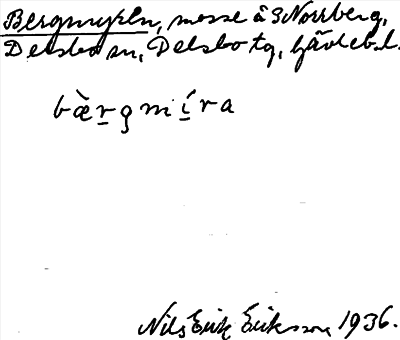 Bergmyrln, mosse å S Norrberg,
Delsbo sn, Delsbo tg, Gävleb. l.
bæ̀rgmíra
Nils Erik Eriksson 1936.